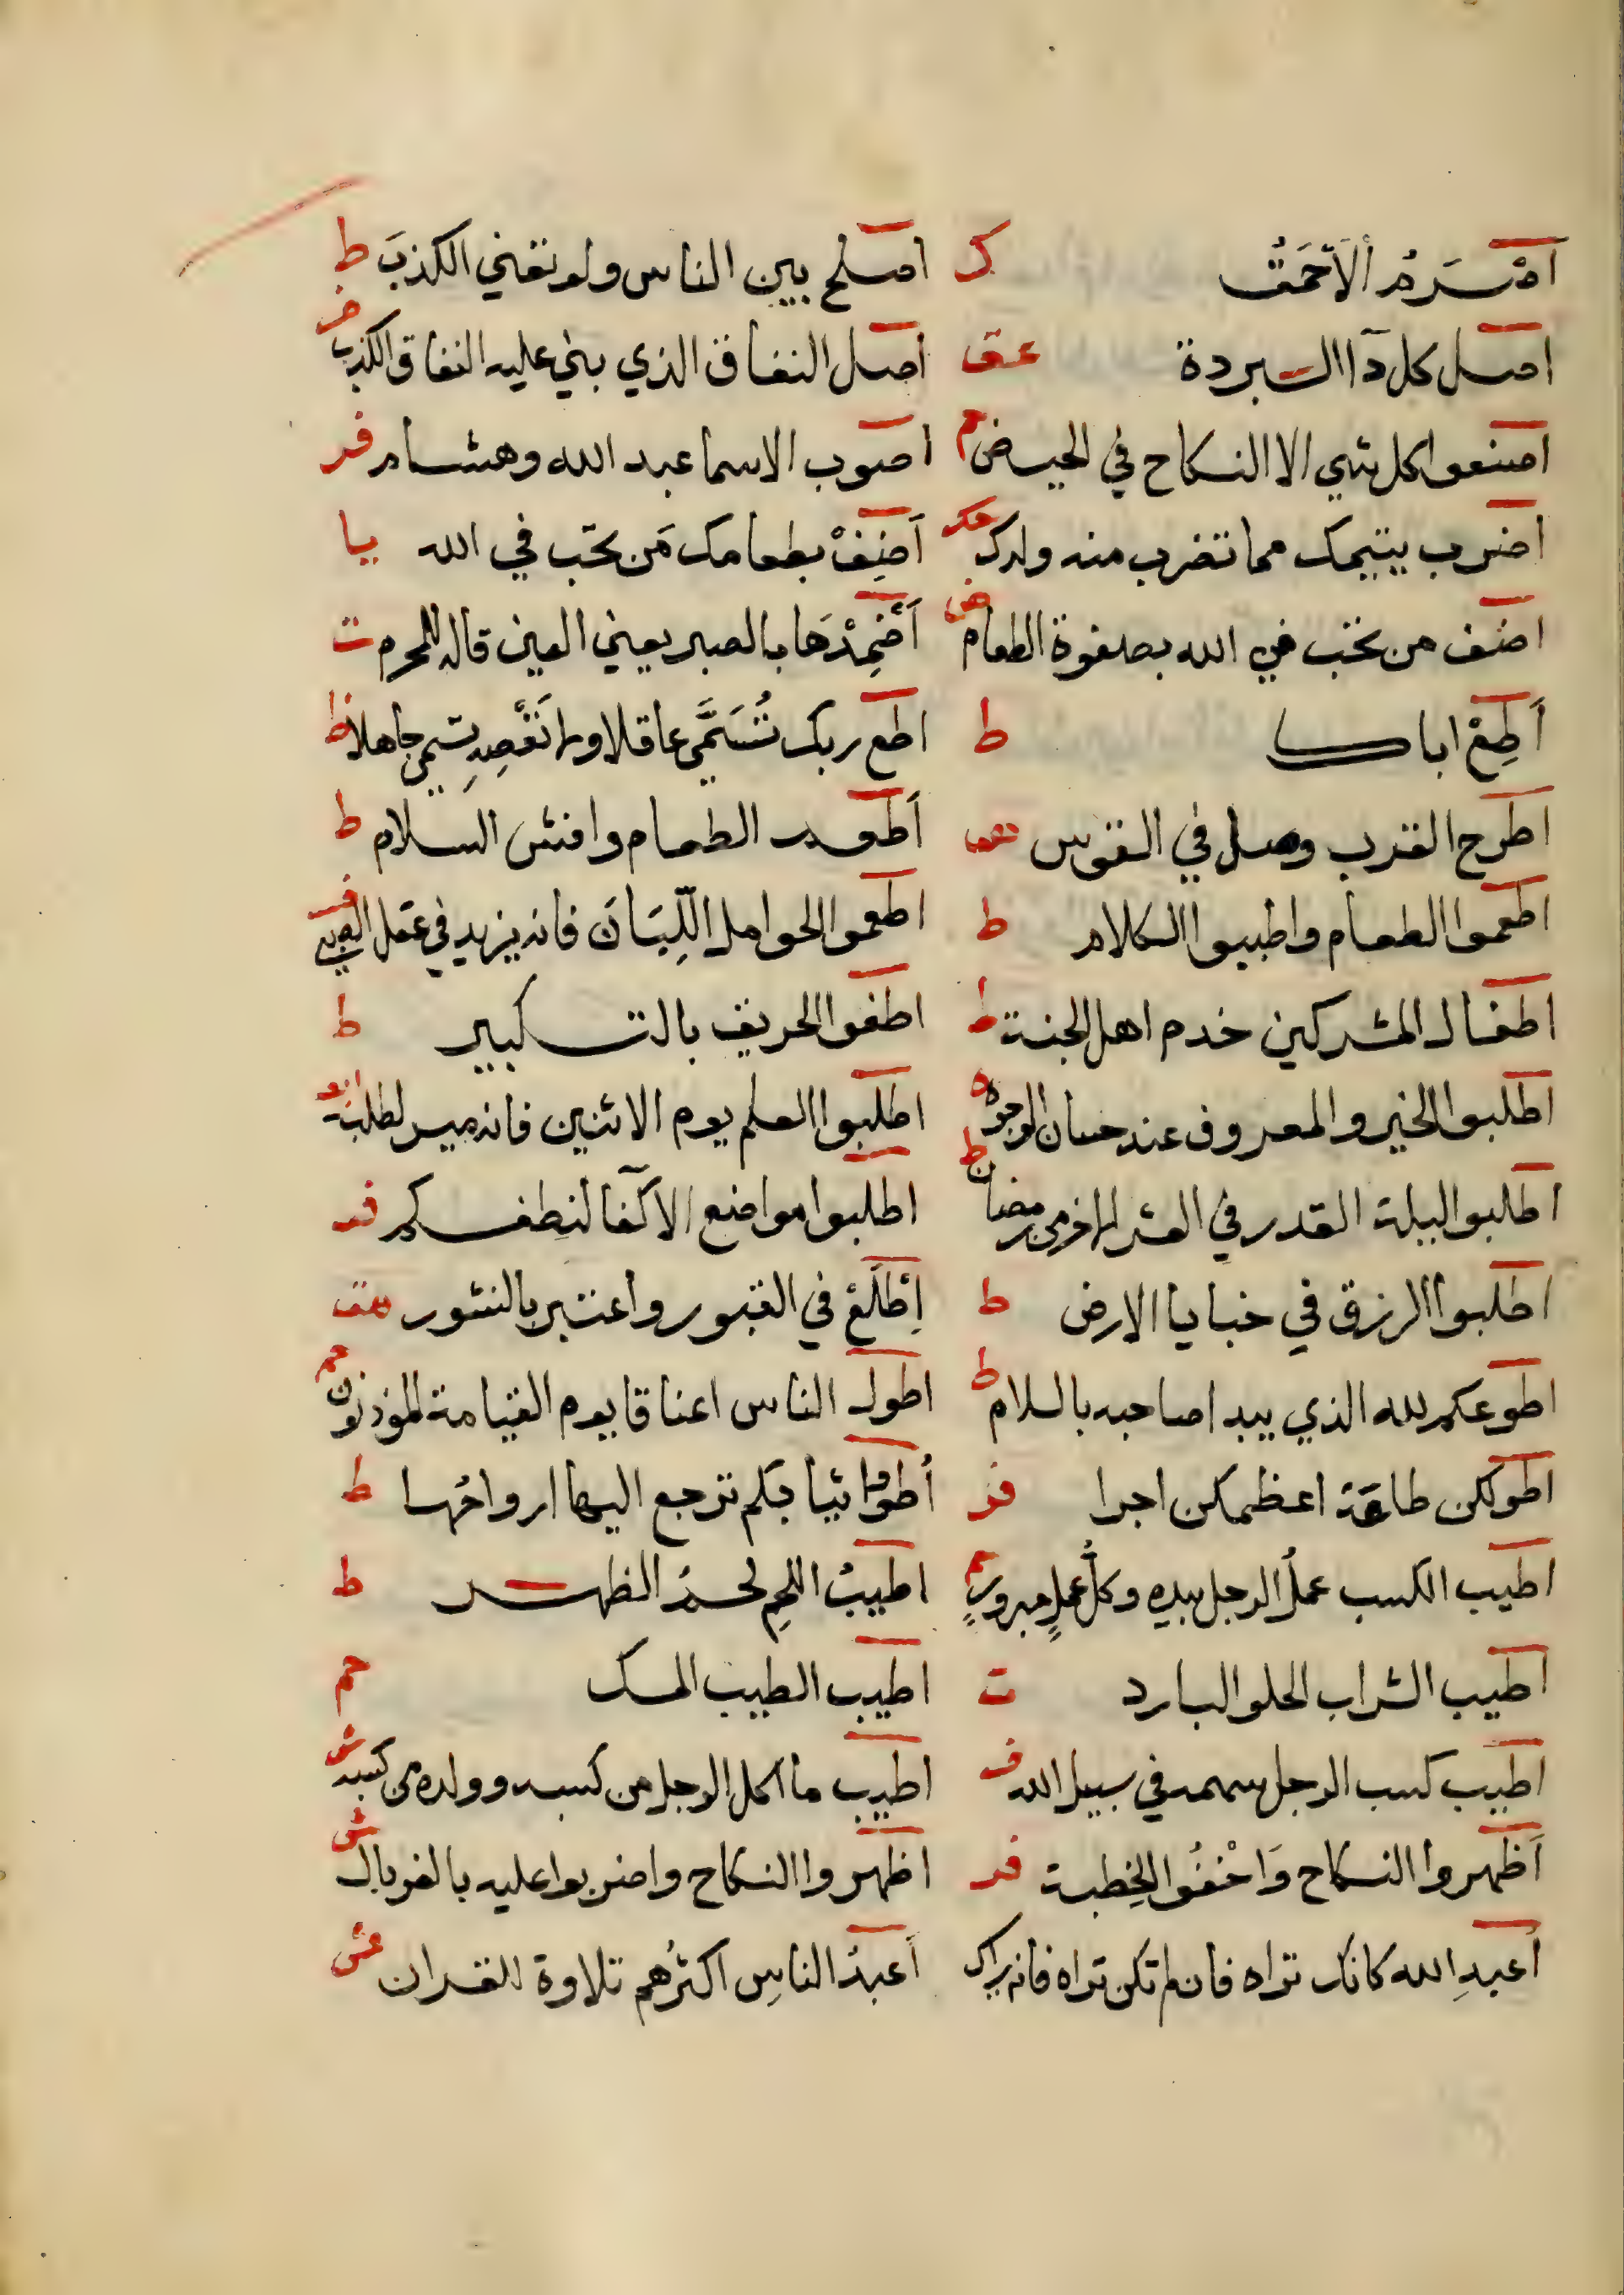 اصْرَمُ الاَحمَقْ ك اصلح بين الناس ولو تعني الكذبَ ط
اصل كل دآ البردة عق اصل النفاق الذي بني عليه النفاق الكذب فر
اصنعوا كل شي الا النكاح في الحيض م اصوب الاسما عبد الله وهشام فر
اضرب يتيمك مما تضرب منه ولدك حك اَضِفْ بطعامك مَن تحب في الله يا
اضف من تحب في الله بصفوة الطعام ض اَضْمِدْهَا بالصبر يعني العين قاله للمحرم ت
اَطِعْ اباك ط اطع ربك تُسَمَّى عاقلا ولا تَعْصِهِ تسمى جاهلا ط
اطرح القرن وصل في القوس اَطعم الطعام وافش السلام ط
اطعموا الطعام واطيبوا الكلام ط اطعموا الحوامل اللِّبَانَ فانه يزيد في عقل الصبي فر
اطفال المشركين خدم اهل الجنة ط اطفوا الحريق بالتكبير ط
اطلبوا الخير والمعروف عند حسان الوجوه ط اطلبوا العلم يوم الاثنين فانه ميسر لطلبته
اطلبوا ليلة القدر في العشر الاخر من رمضان ط اطلبوا مواضع الاكفا لنطفكم فر
اطلبوا الرزق في خبايا الارض ط اِطَّلَعْ في القبور واعتبر بالنشور هق
اطوعكم لله الذي يبدا صاحبه بالسلام ط اطول الناس اعناقا يوم القيامة المؤذنون حم
اطوعكن طاعة اعظمكن اجرا فر اُطووا ثيابكم ترجع اليها ارواحُها ط
اطيب الكسب عملُ الرجل بيده وكلُّ عملٍ مبرورٍ حم اطيبُ اللحمِ لحمُ الظهر ط
اطيب الشراب الحلو البارد ت اطيب الطيب المسك حم
اطيب كسب الرجل سهمه في سبيل الله اطيب ما اكل الرجل من كسبه وولده من كسبه ش
اَظهروا النكاح وَاخْفُوا الخِطبة فر اظهروا النكاح واضربوا عليه بالغربال ش
اُعبدِ الله كانك تراه فان لم تكن تراه فانه يراك اَعبدُ الناسِ اكثرُهم تلاوة للقران